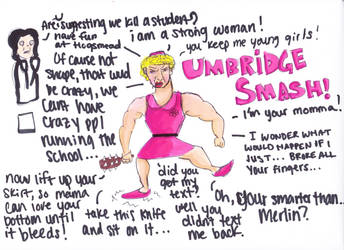 Are you suggesting we kill a student?
have fun
at Hogsmead
Of cause not
snape, that would
be crazy, we
can't have
crazy ppl
running the
school...
i am a strong woman!
you keep me young girls!
UMBRIDGE
SMASH!
I'm your momma!
I wonder what
would happen if I
just... broke all
your fingers...
now lift up your
skirt, so mama
can love your
bottom until
it bleeds!
take this knife
and sit on it...
did you
get my
text?
well you
didn't text
me back.
Oh, your smarter than...
Merlin?